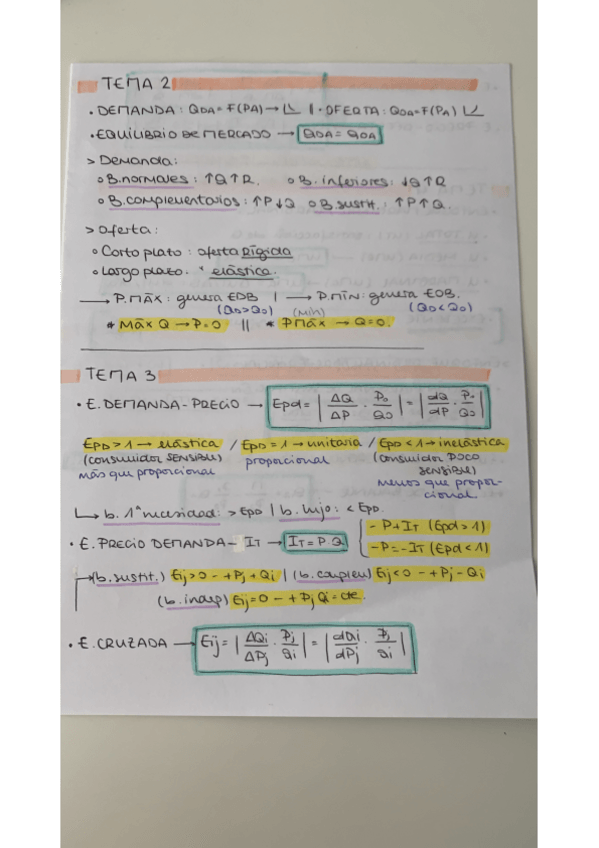 TEMA 2
• DEMANDA: QDA = F(PA) → | • OFERTA: QOA = F(PA)
• EQUILIBRIO DE MERCADO → QDA = QOA
> Demanda:
○ B. normales: ↑Q↑R. ○ B. inferiores: ↓Q↑R
○ B. complementarios: ↑P↓Q ○ B. sustit.: ↑P↑Q.
> Oferta:
○ Corto plazo: oferta Rígida
○ Largo plazo: " elástica.
→ P. MÁX: genera EDB | → P. MÍN: genera EOB.
(QD>QO) (MÍN) (QD<QO)
* Máx Q → P=0 || * P MÁX → Q=0.
TEMA 3
• E. DEMANDA - PRECIO → Epd = | ΔQ/ΔP · P0/Q0 | = | dQ/dP · P0/Q0 |
EPD > 1 → elástica / EPD = 1 → unitaria / EPD < 1 → inelástica
(consumidor SENSIBLE) proporcional (consumidor POCO
más que proporcional SENSIBLE)
menos que propor-
cional.
↳ b. 1ª necesidad: > EPD | b. lujo: < EPD.
• E. PRECIO DEMANDA - IT → IT = P·Q
- P + IT (Epd > 1)
- P = - IT (Epd < 1)
(b. sustit.) Eij > 0 - + Pj + Qi | (b. complem) Eij < 0 - + Pj - Qi
(b. indep) Eij = 0 - + Pj Qi = cte.
• E. CRUZADA → Eij = | ΔQi/ΔPj · Pj/Qi | = | dQi/dPj · Pj/Qi |